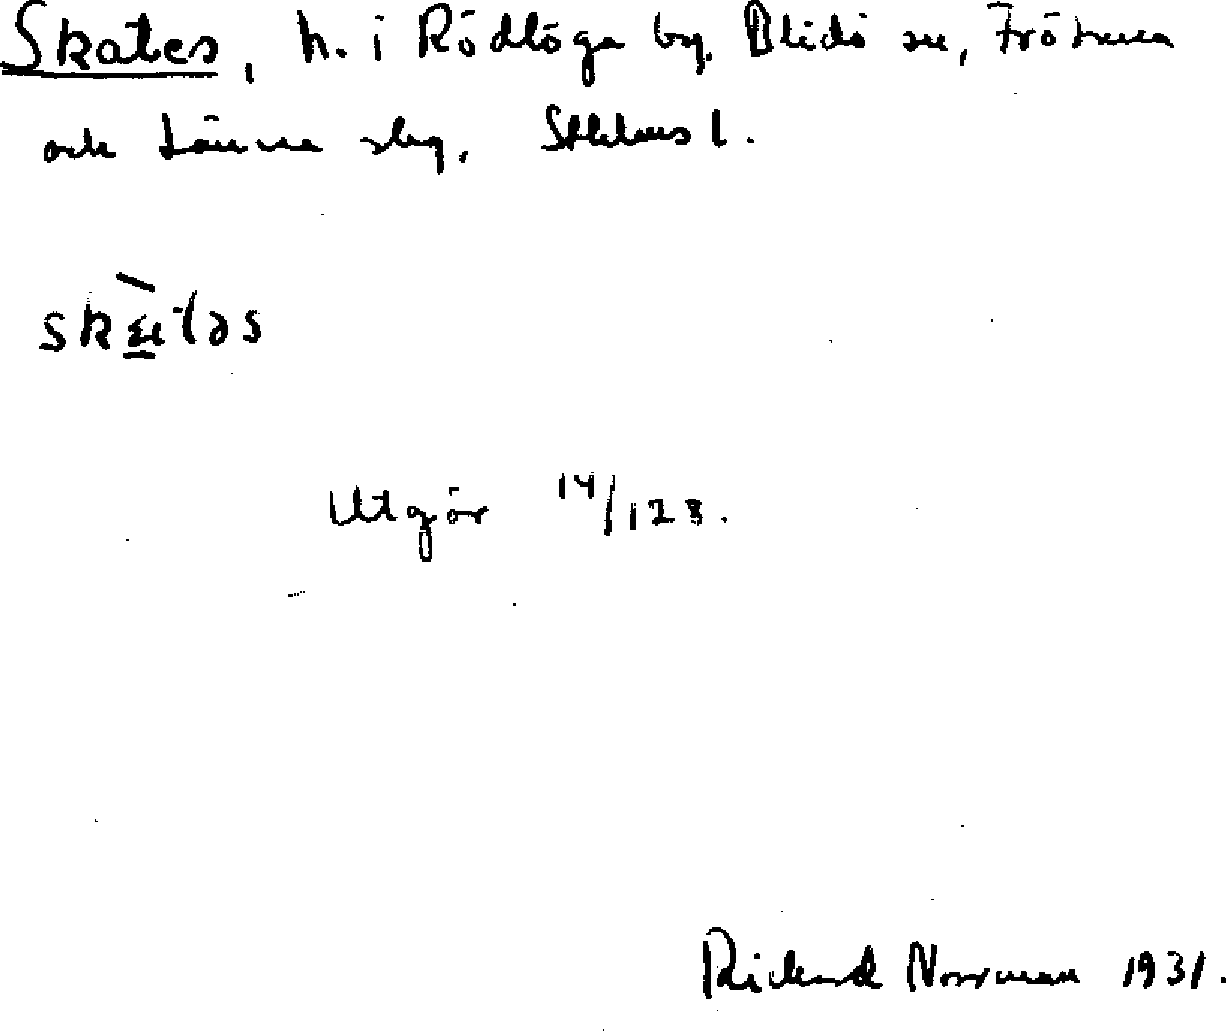 Skates, h. i Rödlöga by. Blidö sn, Frötuna
och Länna slg, Sthlms l.
Utgör 14/128.
Rickard Norrman 1931.